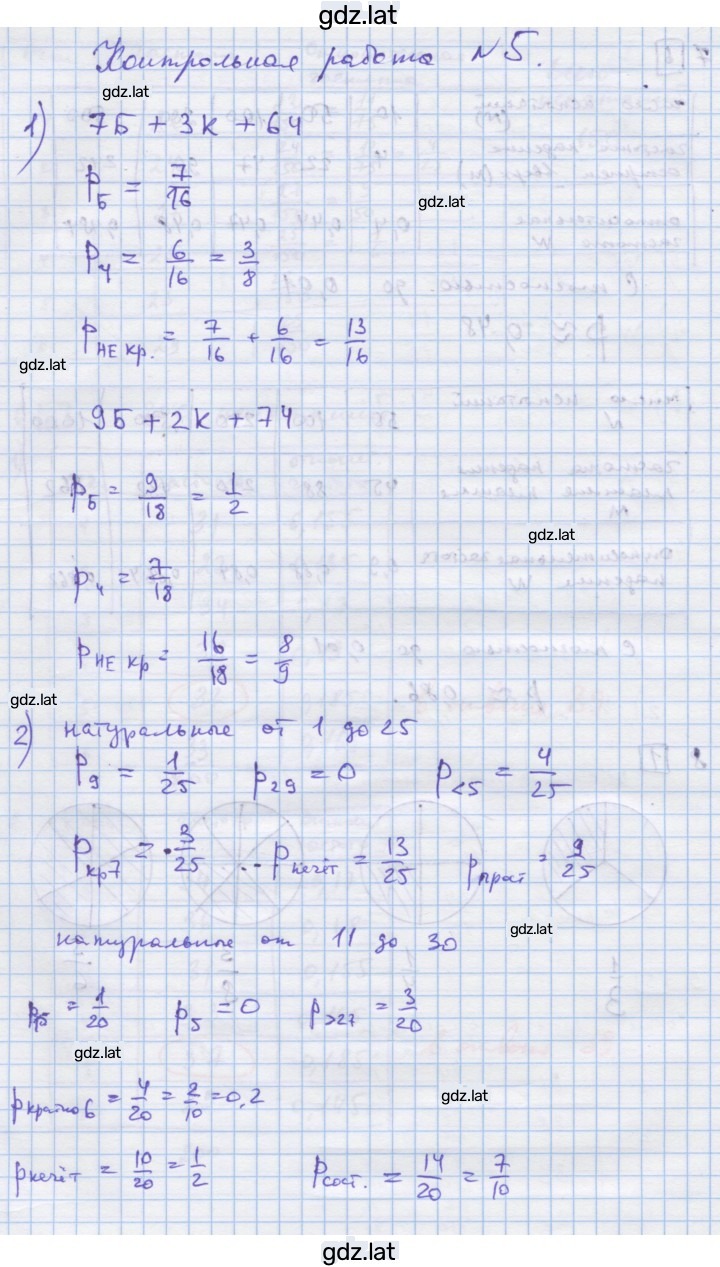 gdz.lat
Контрольная работа №5.
gdz.lat
1) 7Б + 3К + 6Ч
P_Б = 7/16
gdz.lat
P_Ч = 6/16 = 3/8
P_НЕ кр. = 7/16 + 6/16 = 13/16
gdz.lat
9Б + 2К + 7Ч
P_Б = 9/18 = 1/2
gdz.lat
gdz.lat
P_Ч = 7/18
P_НЕ кр = 16/18 = 8/9
gdz.lat
2) натуральные от 1 до 25
P_9 = 1/25 P_29 = 0 P_<5 = 4/25
P_кр7 = 3/25 P_нечёт = 13/25 P_прост = 9/25
gdz.lat
натуральные от 11 до 30
= 1/20 P_5 = 0 P_>27 = 3/20
gdz.lat
P_кратно6 = 4/20 = 2/10 = 0,2
gdz.lat
P_нечёт = 10/20 = 1/2 P_сост. = 14/20 = 7/10
gdz.lat